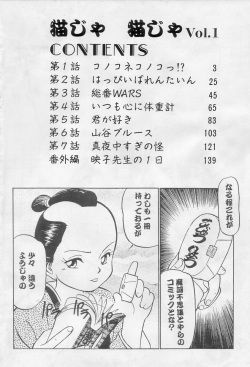 猫じゃ 猫じゃ Vol.1
CONTENTS
第1話 コノコネコノコっ!? 3
第2話 はっぴいばれんたいん 25
第3話 総番WARS 45
第4話 いつも心に体重計 65
第5話 君が好き 83
第6話 山谷ブルース 103
第7話 真夜中すぎの怪 121
番外編 映子先生の1日 139
なる程これが
摩訶不思議とやらの
コミックとな?
わしも一冊
持っておるが
少々違う
ようじゃの